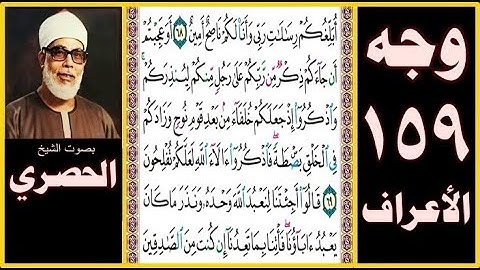 وجه
١٥٩
الأعراف
أُبَلِّغُكُمْ رِسَٰلَٰتِ رَبِّى وَأَنَا۠ لَكُمْ نَاصِحٌ أَمِينٌ ٦٨ أَوَعَجِبْتُمْ
أَن جَآءَكُمْ ذِكْرٌ مِّن رَّبِّكُمْ عَلَىٰ رَجُلٍ مِّنكُمْ لِيُنذِرَكُمْ
وَٱذْكُرُوٓا۟ إِذْ جَعَلَكُمْ خُلَفَآءَ مِنۢ بَعْدِ قَوْمِ نُوحٍ وَزَادَكُمْ
فِى ٱلْخَلْقِ بَصْۜطَةً فَٱذْكُرُوٓا۟ ءَالَآءَ ٱللَّهِ لَعَلَّكُمْ تُفْلِحُونَ
٦٩ قَالُوٓا۟ أَجِئْتَنَا لِنَعْبُدَ ٱللَّهَ وَحْدَهُۥ وَنَذَرَ مَا كَانَ
يَعْبُدُ ءَابَآؤُنَا فَأْتِنَا بِمَا تَعِدُنَآ إِن كُنتَ مِنَ ٱلصَّٰدِقِينَ
بصوت الشيخ
الحصري